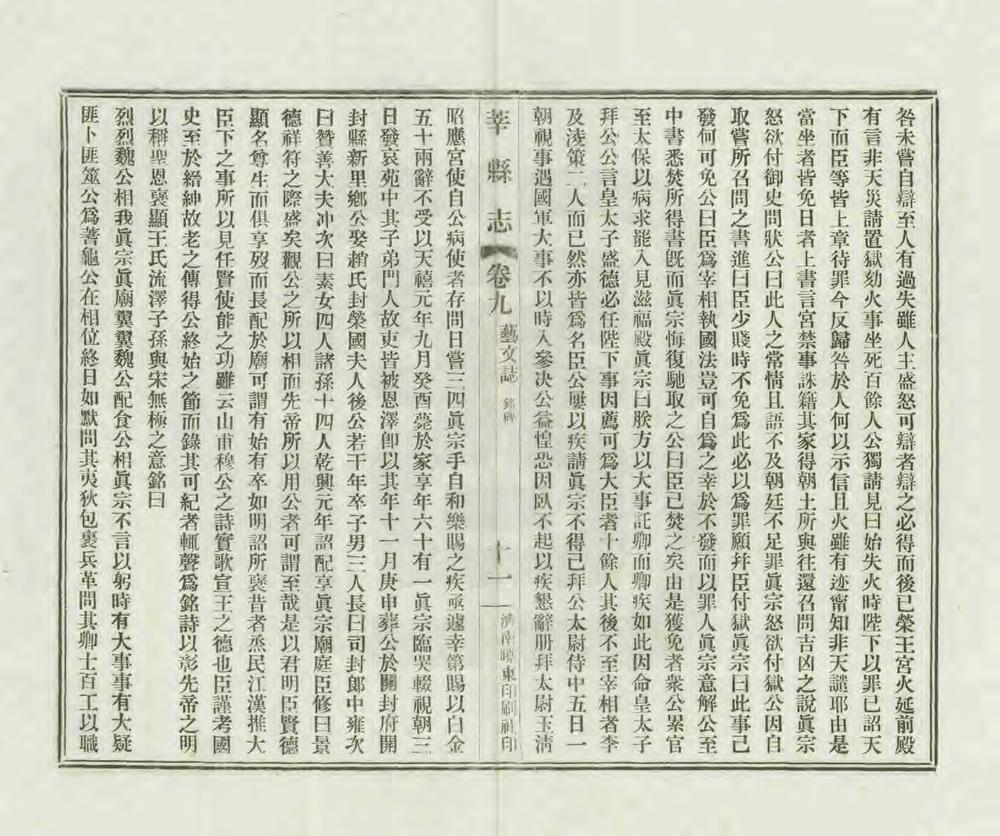 咎未嘗自辯至人有過失雖人主盛怒可辯者辯之必得而後已榮王宮火延前殿
有言非天災請置獄劾火事坐死百餘人公獨請見曰始失火時陛下以罪已詔天
下而臣等皆上章待罪今反歸咎於人何以示信且火雖有迹甯知非天譴耶由是
當坐者皆免日者上書言宮禁事誅籍其家得朝士所與往還召問吉凶之說眞宗
怒欲付御史問狀公曰此人之常情且語不及朝廷不足罪眞宗怒欲付獄公因自
取嘗所召問之書進曰臣少賤時不免爲此必以爲罪願幷臣付獄眞宗曰此事已
發何可免公曰臣爲宰相執國法豈可自爲之幸於不發而以罪人眞宗意解公至
中書悉焚所得書旣而眞宗悔復馳取之公曰臣已焚之矣由是獲免者衆公累官
至太保以病求罷入見滋福殿眞宗曰朕方以大事託卿而卿疾如此因命皇太子
拜公公言皇太子盛德必任陛下事因薦可爲大臣者十餘人其後不至宰相者李
及淩策二人而已然亦皆爲名臣公屢以疾請眞宗不得已拜公太尉侍中五日一
朝視事遇國軍大事不以時入參決公益惶恐因臥不起以疾懇辭册拜太尉玉淸
莘縣志 卷九 藝文誌 銘碑 十一 濟南曉東印刷社印
昭應宮使自公病使者存問日嘗三四眞宗手自和藥賜之疾亟遽幸第賜以白金
五十兩辭不受以天禧元年九月癸酉薨於家享年六十有一眞宗臨哭輟視朝三
日發哀苑中其子弟門人故吏皆被恩澤卽以其年十一月庚申葬公於開封府開
封縣新里鄉公娶趙氏封榮國夫人後公若干年卒子男三人長曰司封郞中雍次
曰贊善大夫冲次曰素女四人諸孫十四人乾興元年詔配享眞宗廟庭臣修曰景
德祥符之際盛矣觀公之所以相而先帝所以用公者可謂至哉是以君明臣賢德
顯名尊生而俱享歿而長配於廟可謂有始有卒如明詔所褒昔者烝民江漢推大
臣下之事所以見任賢使能之功雖云山甫穆公之詩實歌宣王之德也臣謹考國
史至於縉紳故老之傳得公終始之節而錄其可紀者輒聲爲銘詩以彰先帝之明
以稱聖恩褒顯王氏流澤子孫與宋無極之意銘曰
烈烈魏公相我眞宗眞廟翼翼魏公配食公相眞宗不言以躬時有大事事有大疑
匪卜匪筮公爲蓍龜公在相位終日如默問其夷狄包裹兵革問其卿士百工以職